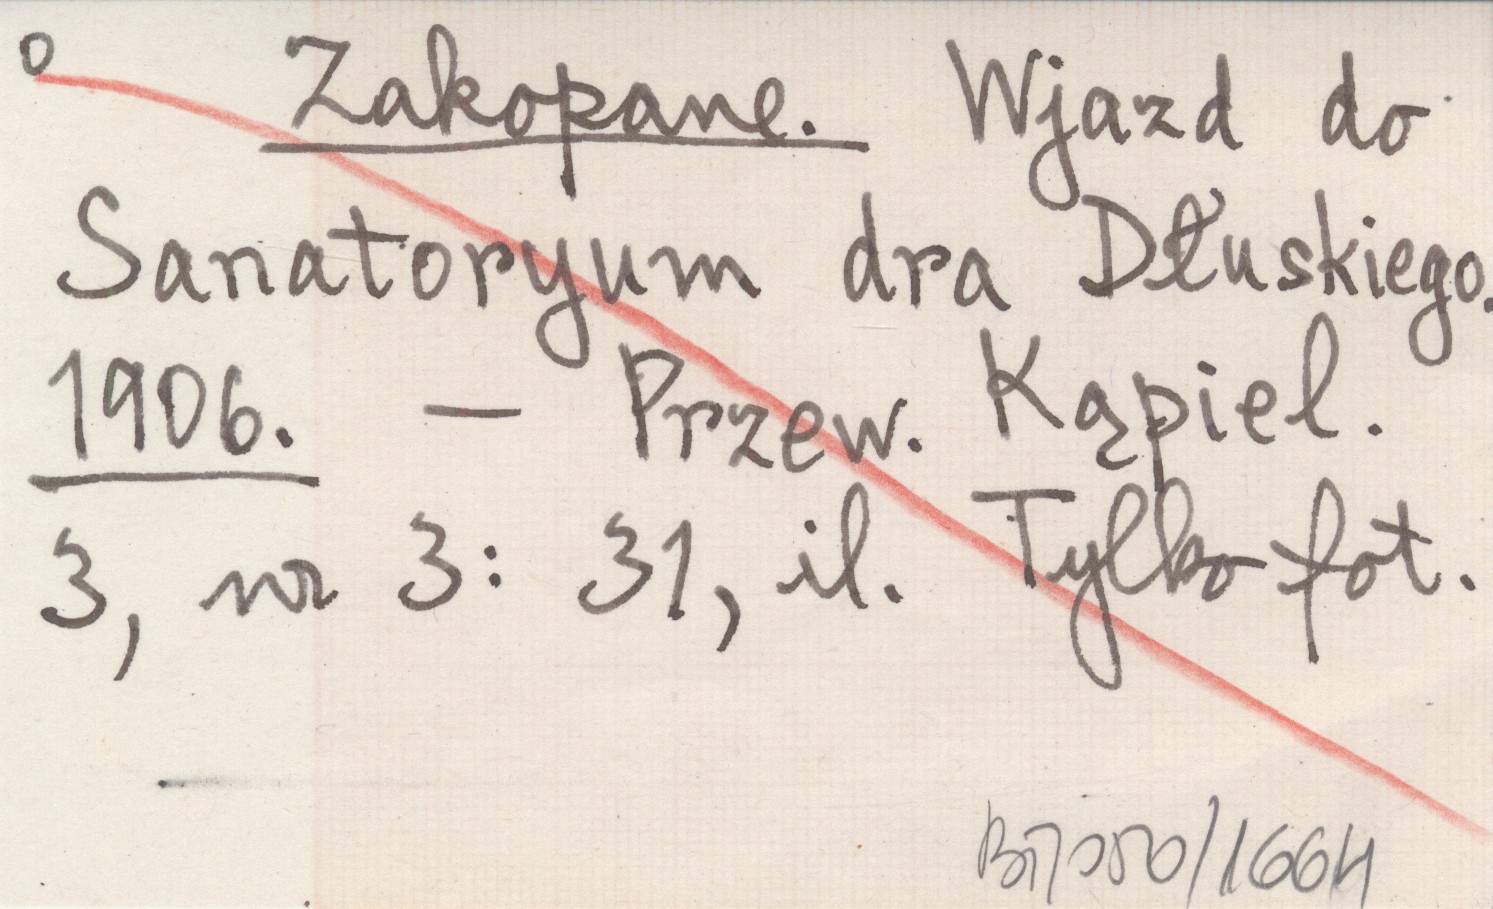 o Zakopane. Wjazd do
Sanatoryum dra Dłuskiego.
1906. — Przew. Kąpiel.
3, nr 3: 31, il. Tylko fot.